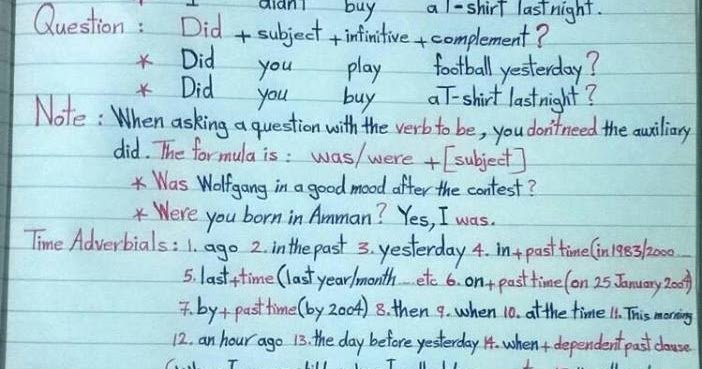 didn't buy a T-shirt last night.
Question : Did + subject + infinitive + complement ?
* Did you play football yesterday ?
* Did you buy a T-shirt last night ?
Note : When asking a question with the verb to be, you don't need the auxiliary
did. The formula is : was/were + [subject]
* Was Wolfgang in a good mood after the contest ?
* Were you born in Amman? Yes, I was.
Time Adverbials : 1. ago 2. in the past 3. yesterday 4. in + past time (in 1983/2000 ....
5. last + time (last year/month ... etc 6. on + past time (on 25 January 2007)
7. by + past time (by 2004) 8. then 9. when 10. at the time 11. This morning
12. an hour ago 13. the day before yesterday 14. when + dependent past clause